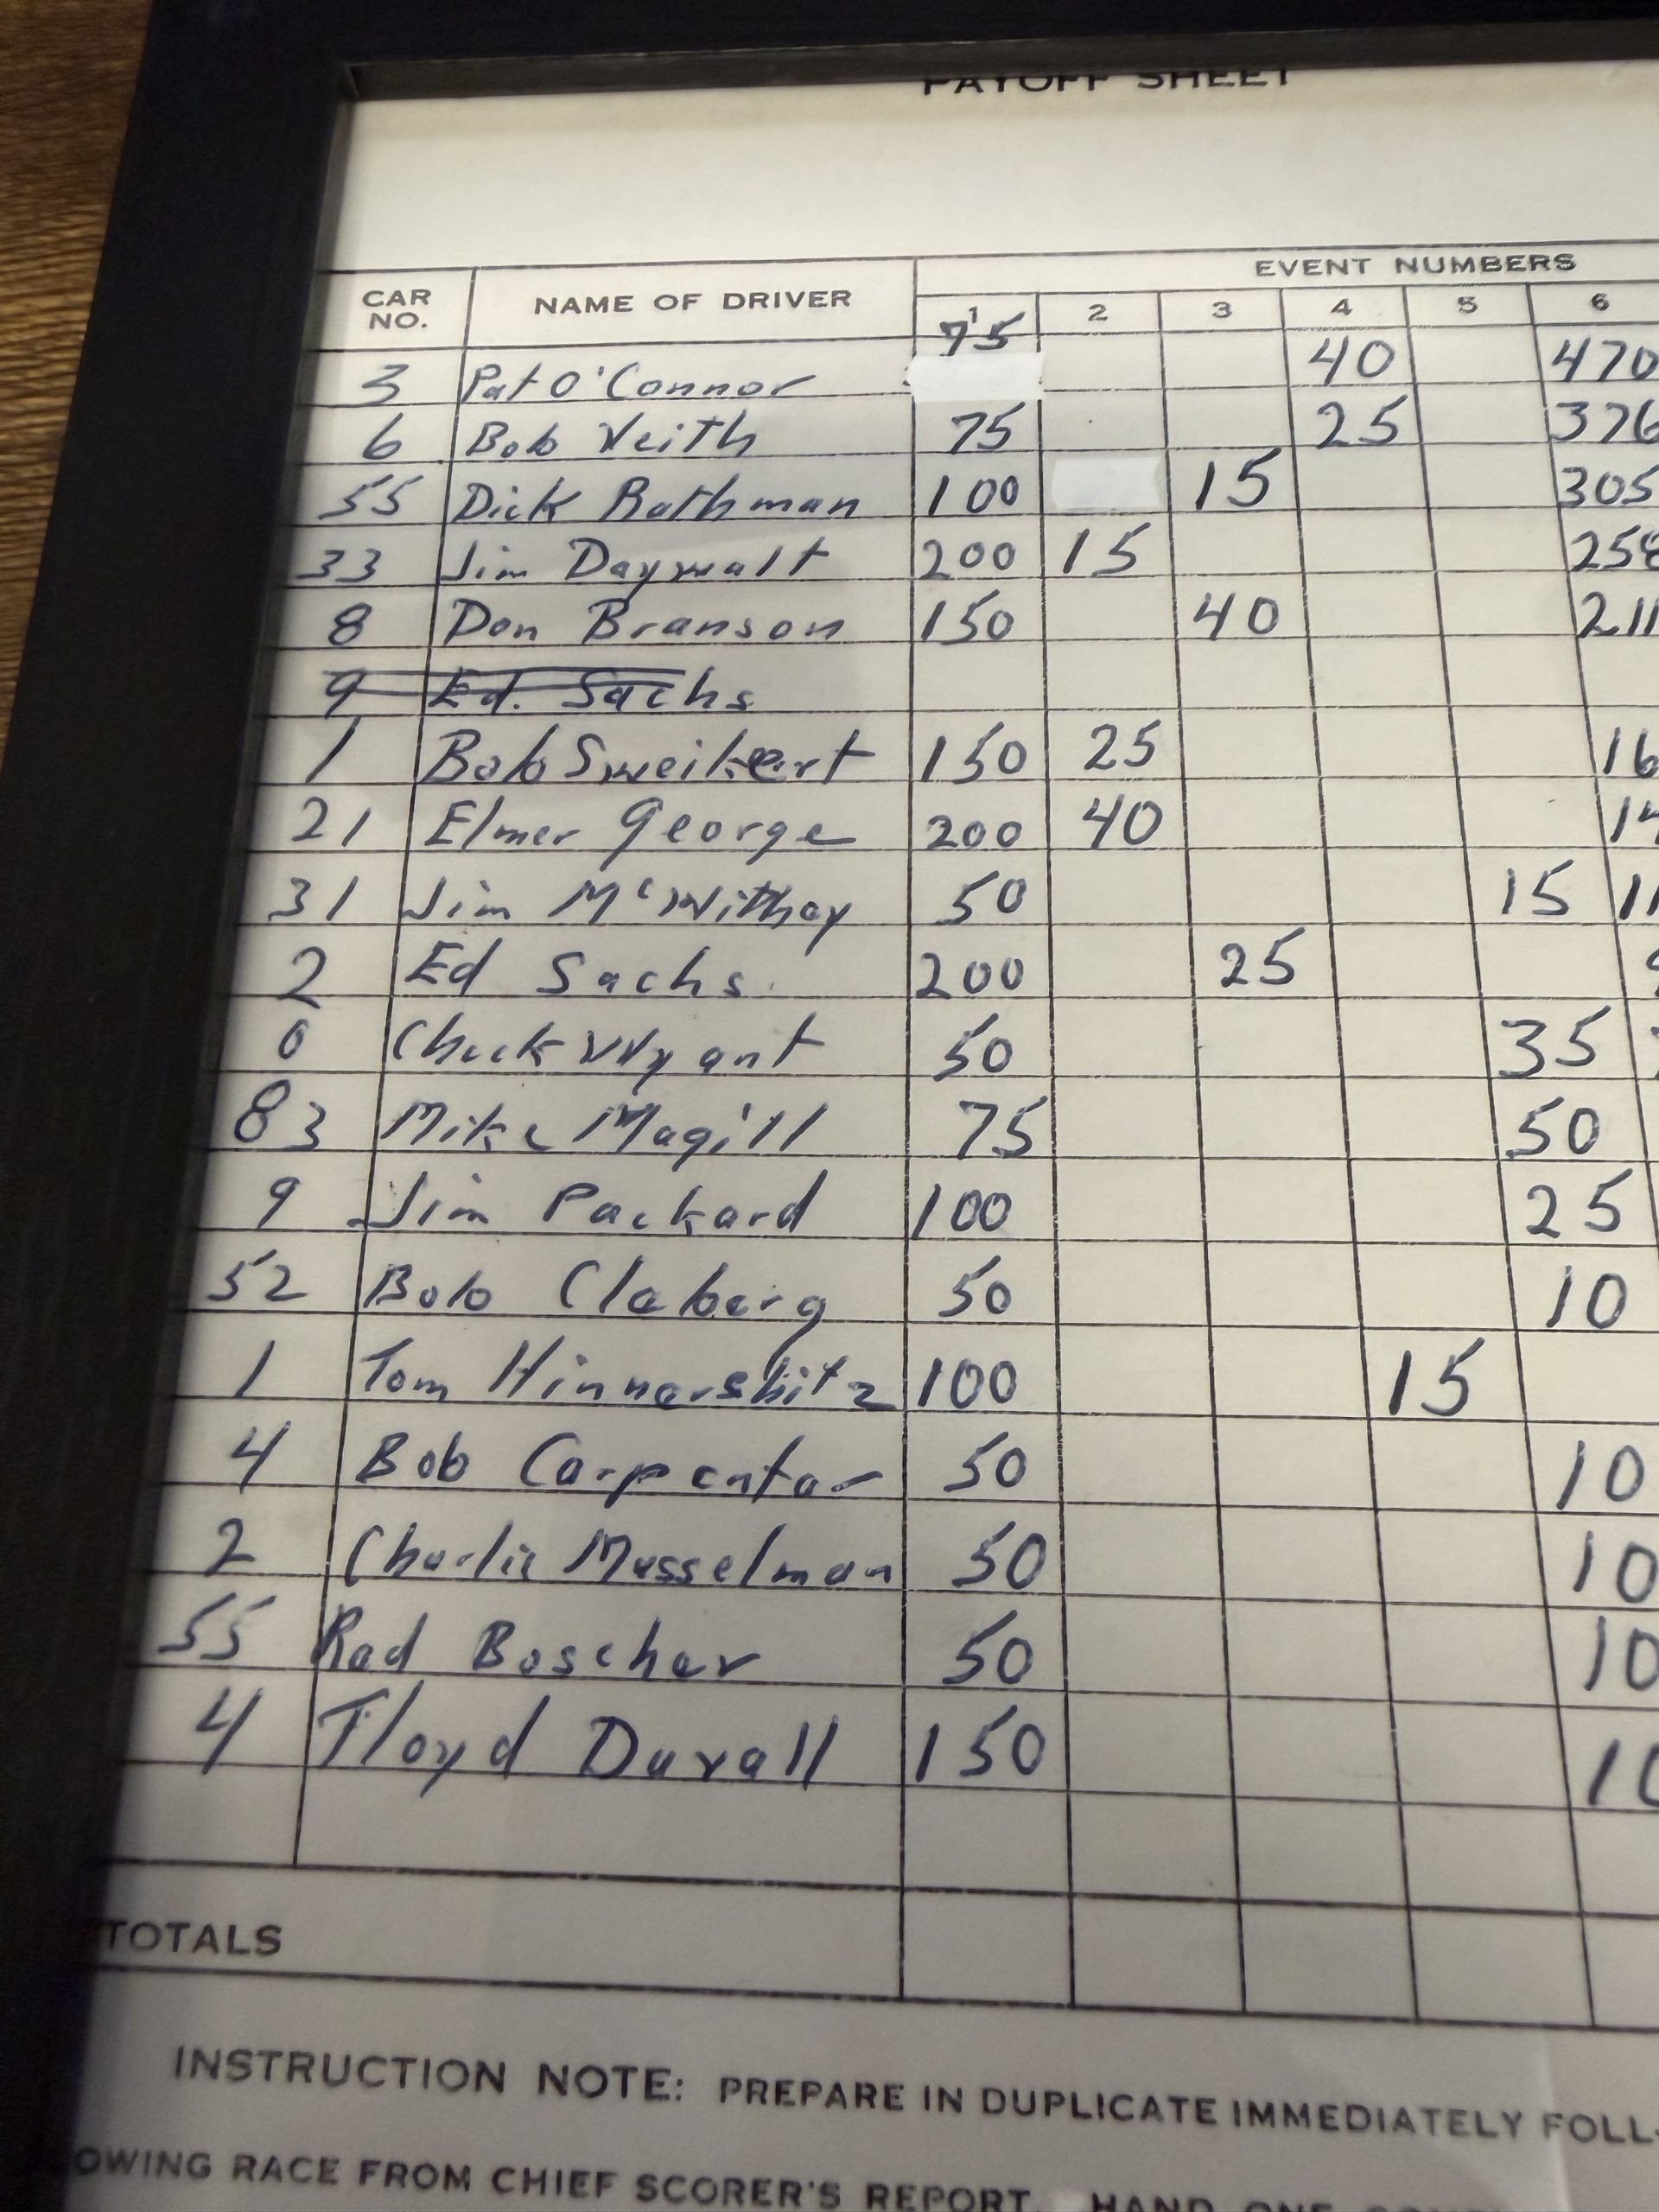 PAYOFF SHEET
CAR NO. NAME OF DRIVER EVENT NUMBERS
1 2 3 4 5 6
3 Pat O'Connor 75 40 470
6 Bob Veith 75 25 376
55 Dick Rathman 100 15 305
33 Jim Daywalt 200 15 258
8 Don Branson 150 40 211
9 Ed. Sachs
1 Bob Sweikert 150 25 16
21 Elmer George 200 40 14
31 Jim McWithey 50 15 11
2 Ed Sachs 200 25
0 Chuck Wyant 50 35
83 Mike Magill 75 50
9 Jim Packard 100 25
52 Bob Claberg 50 10
1 Tom Hinnershitz 100 15
4 Bob Carpenter 50 10
2 Charlie Musselman 50 10
55 Rad Boscher 50 10
4 Floyd Duvall 150 10
TOTALS
INSTRUCTION NOTE: PREPARE IN DUPLICATE IMMEDIATELY FOLL-
OWING RACE FROM CHIEF SCORER'S REPORT. HAND ONE